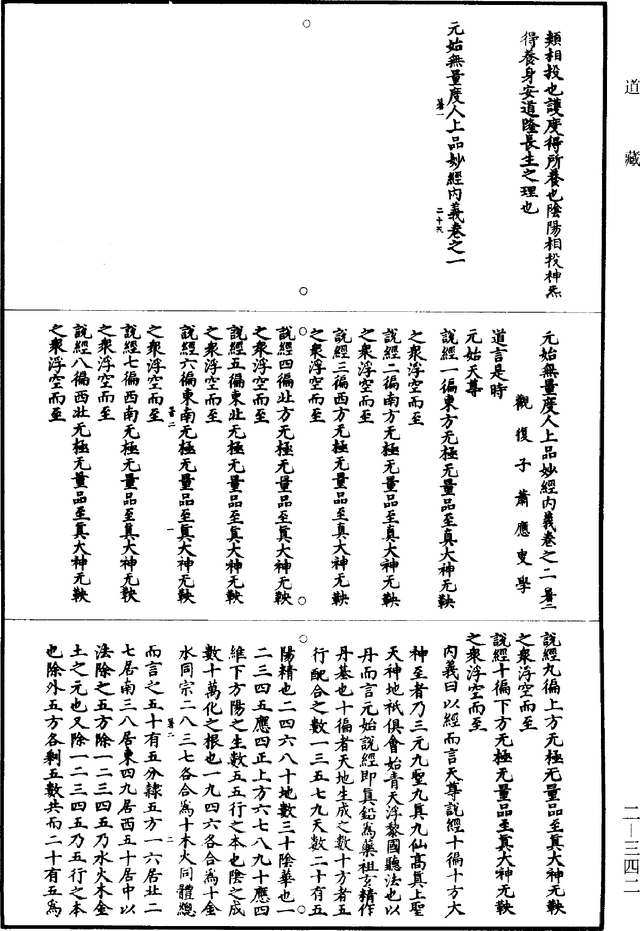 道藏
類相投也護度得所養也陰陽相投神炁
得養身安道隆長生之理也
元始無量度人上品妙經內義卷之一
暑一
二十六
元始無量度人上品妙經內義卷之二 暑二
觀復子蕭應叟學
道言是時
元始天尊
說經一徧東方无極无量品至真大神无鞅
之衆浮空而至
說經二徧南方无極无量品至真大神无鞅
之衆浮空而至
說經三徧西方无極无量品至真大神无鞅
之衆浮空而至
說經四徧北方无極无量品至真大神无鞅
之衆浮空而至
說經五徧東北无極无量品至真大神无鞅
之衆浮空而至
說經六徧東南无極无量品至真大神无鞅
暑二
一
之衆浮空而至
說經七徧西南无極无量品至真大神无鞅
之衆浮空而至
說經八徧西北无極无量品至真大神无鞅
之衆浮空而至
說經九徧上方无極无量品至真大神无鞅
之衆浮空而至
說經十徧下方无極无量品至真大神无鞅
之衆浮空而至
內義曰以經而言天尊說經十徧十方大
神至者乃三元九聖九真九仙高真上聖
天神地祇俱會始青天浮黎國聽法也以
丹而言元始說經即真鉛為藥祖玄精作
丹基也十徧者天地生成之數十方者五
行配合之數一三五七九天數二十有五
陽精也二四六八十地數三十陰華也一
二三四五應四正上方六七八九十應四
維下方陽之生數五五行之本也陰之成
數十萬化之根也一九四六各合為十金
水同宗二八三七各合為十木火同體總
暑二
二
而言之五十有五分隸五方一六居北二
七居南三八居東四九居西五十居中以
法除之五方除一二三四五乃水火木金
土之元也又除一二三四五乃五行之本
也除外五方各剩五數共而二十有五為
二—三四二